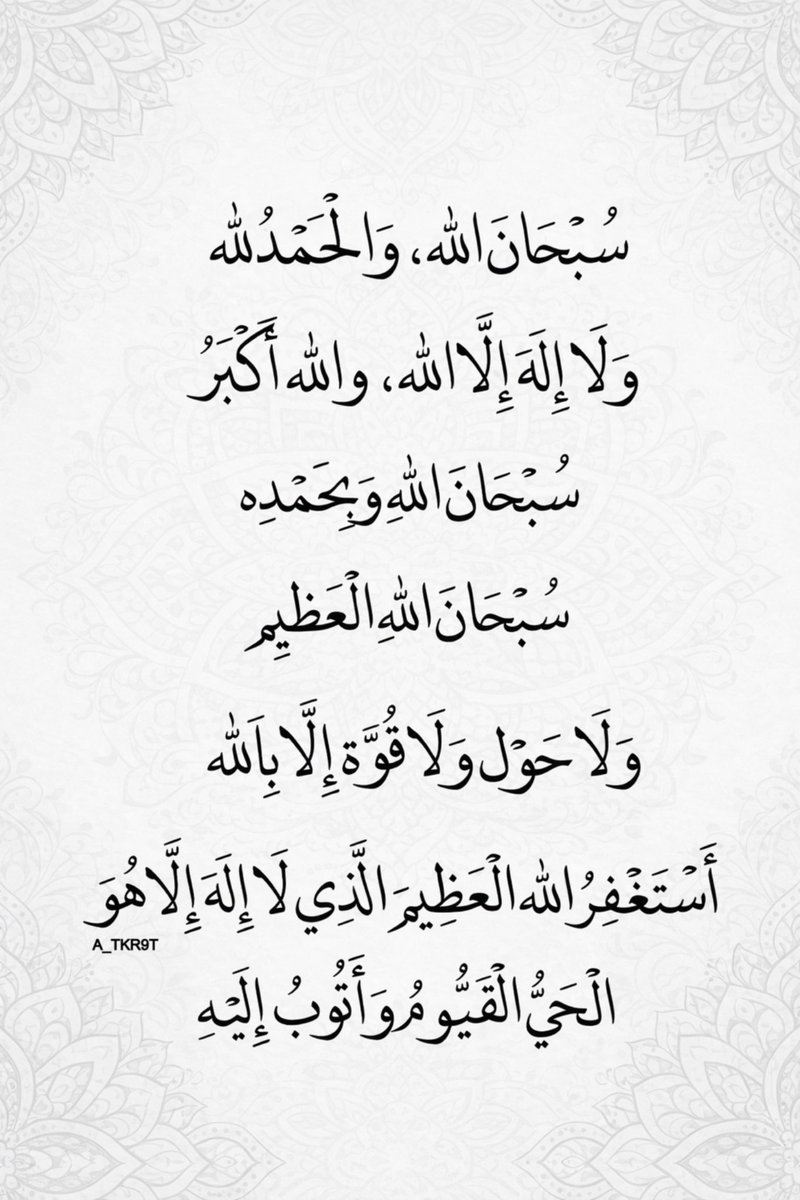 سُبْحَانَ الله، وَالْحَمْدُ لله
وَلَا إِلَهَ إِلَّا الله، والله أَكْبَرُ
سُبْحَانَ اللهِ وَبِحَمْدِه
سُبْحَانَ اللهِ الْعَظِيمِ
وَلَا حَوْل وَلَا قُوَّة إِلَّا بِاَلله
أَسْتَغْفِرُ الله الْعَظِيمَ الَّذِي لَا إِلَهَ إِلَّا هُوَ
A_TKR9T
الْحَيُّ الْقَيُّومُ وَأَتُوبُ إِلَيْهِ